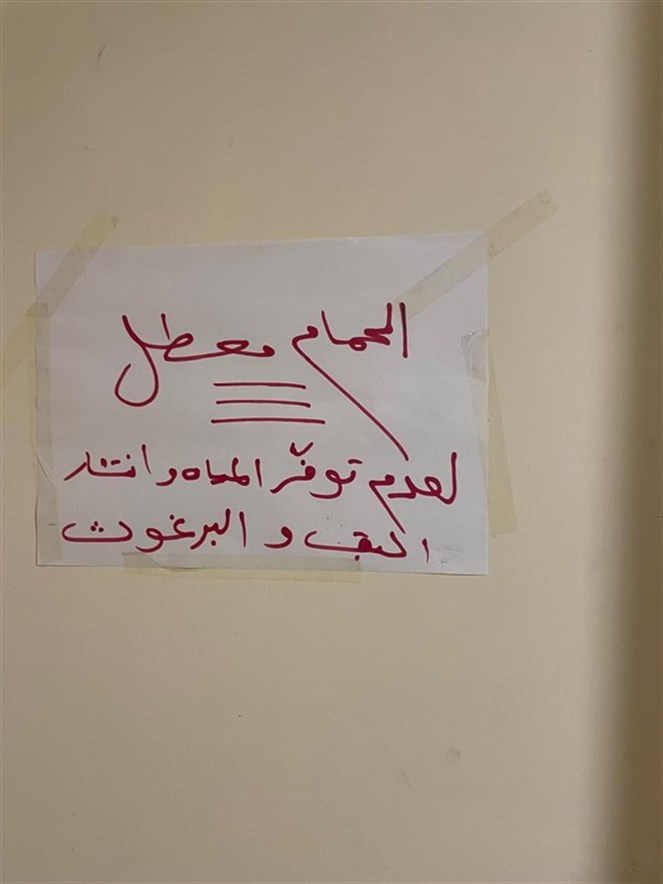 الحمام معطل
لعدم توفّر المياه وانتشار
البق و البرغوث